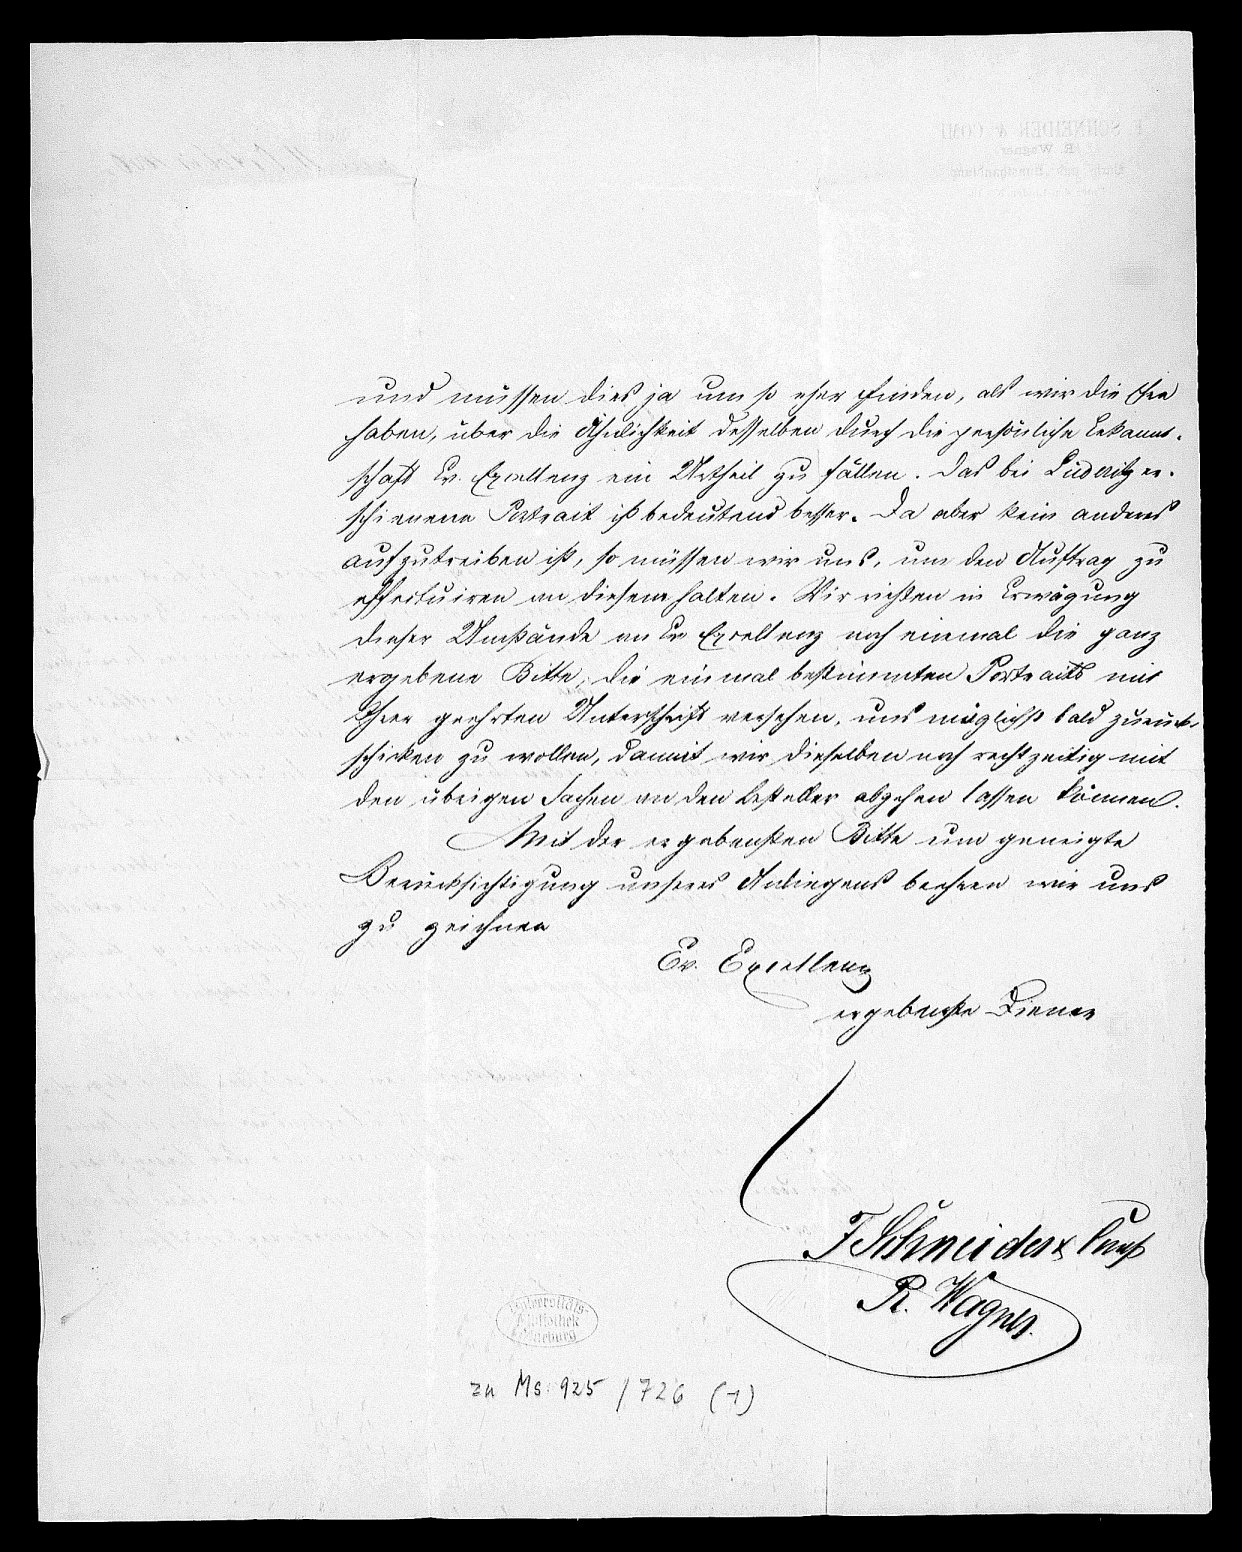 und müssen dies ja um so eher finden, als wir die Ehre
haben, über die Ähnlichkeit desselben durch die persönliche Bekannt-
schaft Ew. Excellenz ein Urtheil zu fällen. Das bei Lüderitz er-
schienene Portrait ist bedeutend besser. Da aber kein anderes
aufzutreiben ist, so müssen wir uns, um den Auftrag zu
effectuiren an diesem halten. Wir richten in Erwägung
dieser Umstände an Ew Excellenz noch einmal die ganz
ergebene Bitte, die einmal bestimmten Portraits mit
Ihrer geehrten Unterschrift versehen, uns möglichst bald zurück-
schicken zu wollen, damit wir dieselben noch rechtzeitig mit
den übrigen Sachen an den Besteller abgehen lassen können.
Mit der ergebensten Bitte um geneigte
Berücksichtigung unseres Anliegens beehren wir uns
zu zeichnen
Ew. Excellenz
ergebenste Diener
F Schneider & Comp
R. Wagner.
Universitäts-
Bibliothek
zu Ms. 925 / 726 (1)